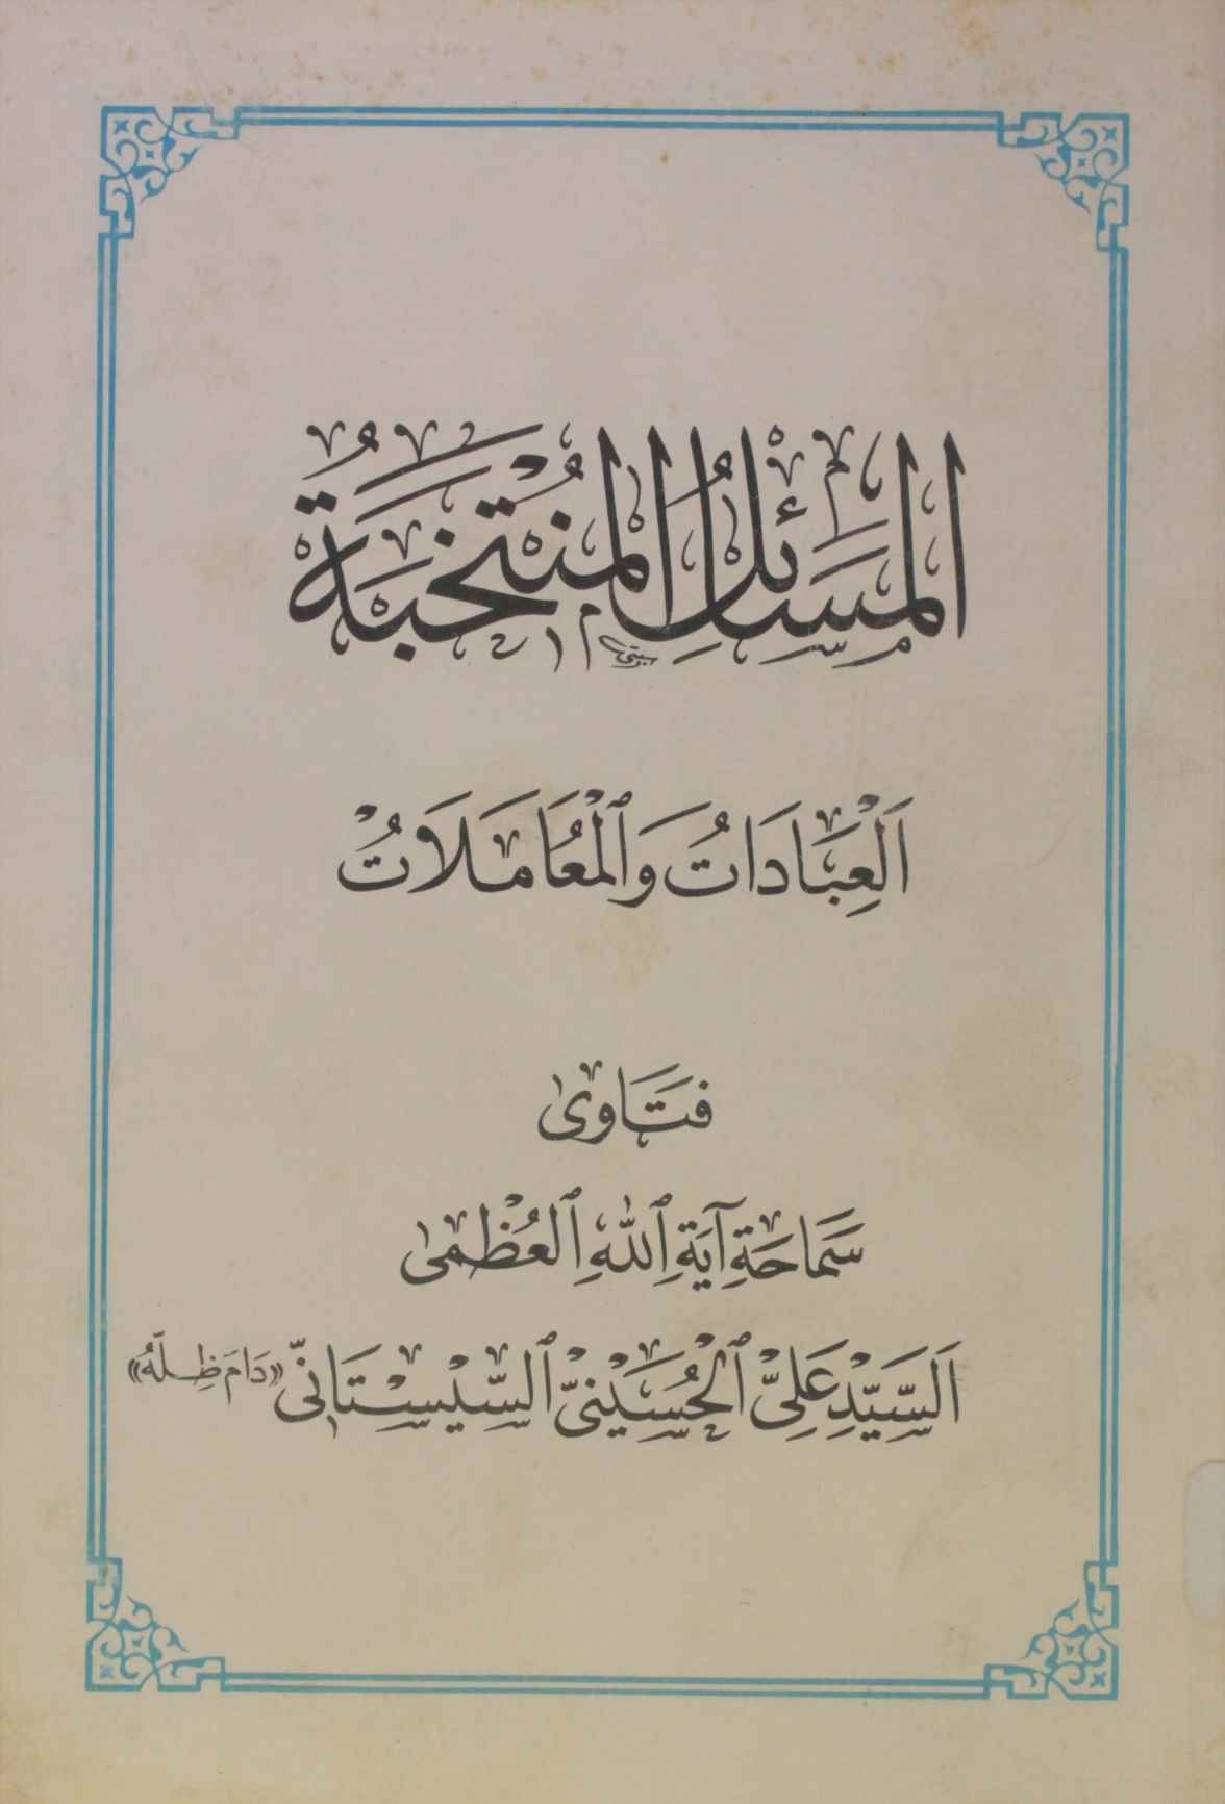 المَسَائِلُ المُنْتَخَبَةُ
اَلْعِبَادَاتُ وَٱلْمُعَامَلَاتُ
فَتَاوىٰ
سَمَاحَةِ آيَةِ ٱللّٰهِ ٱلْعُظْمىٰ
اَلسَّيِّدِ عَلِيّ ٱلْحُسَيْنِيّ ٱلسِّيْسْتَانِيّ «دَامَ ظِلُّهُ»